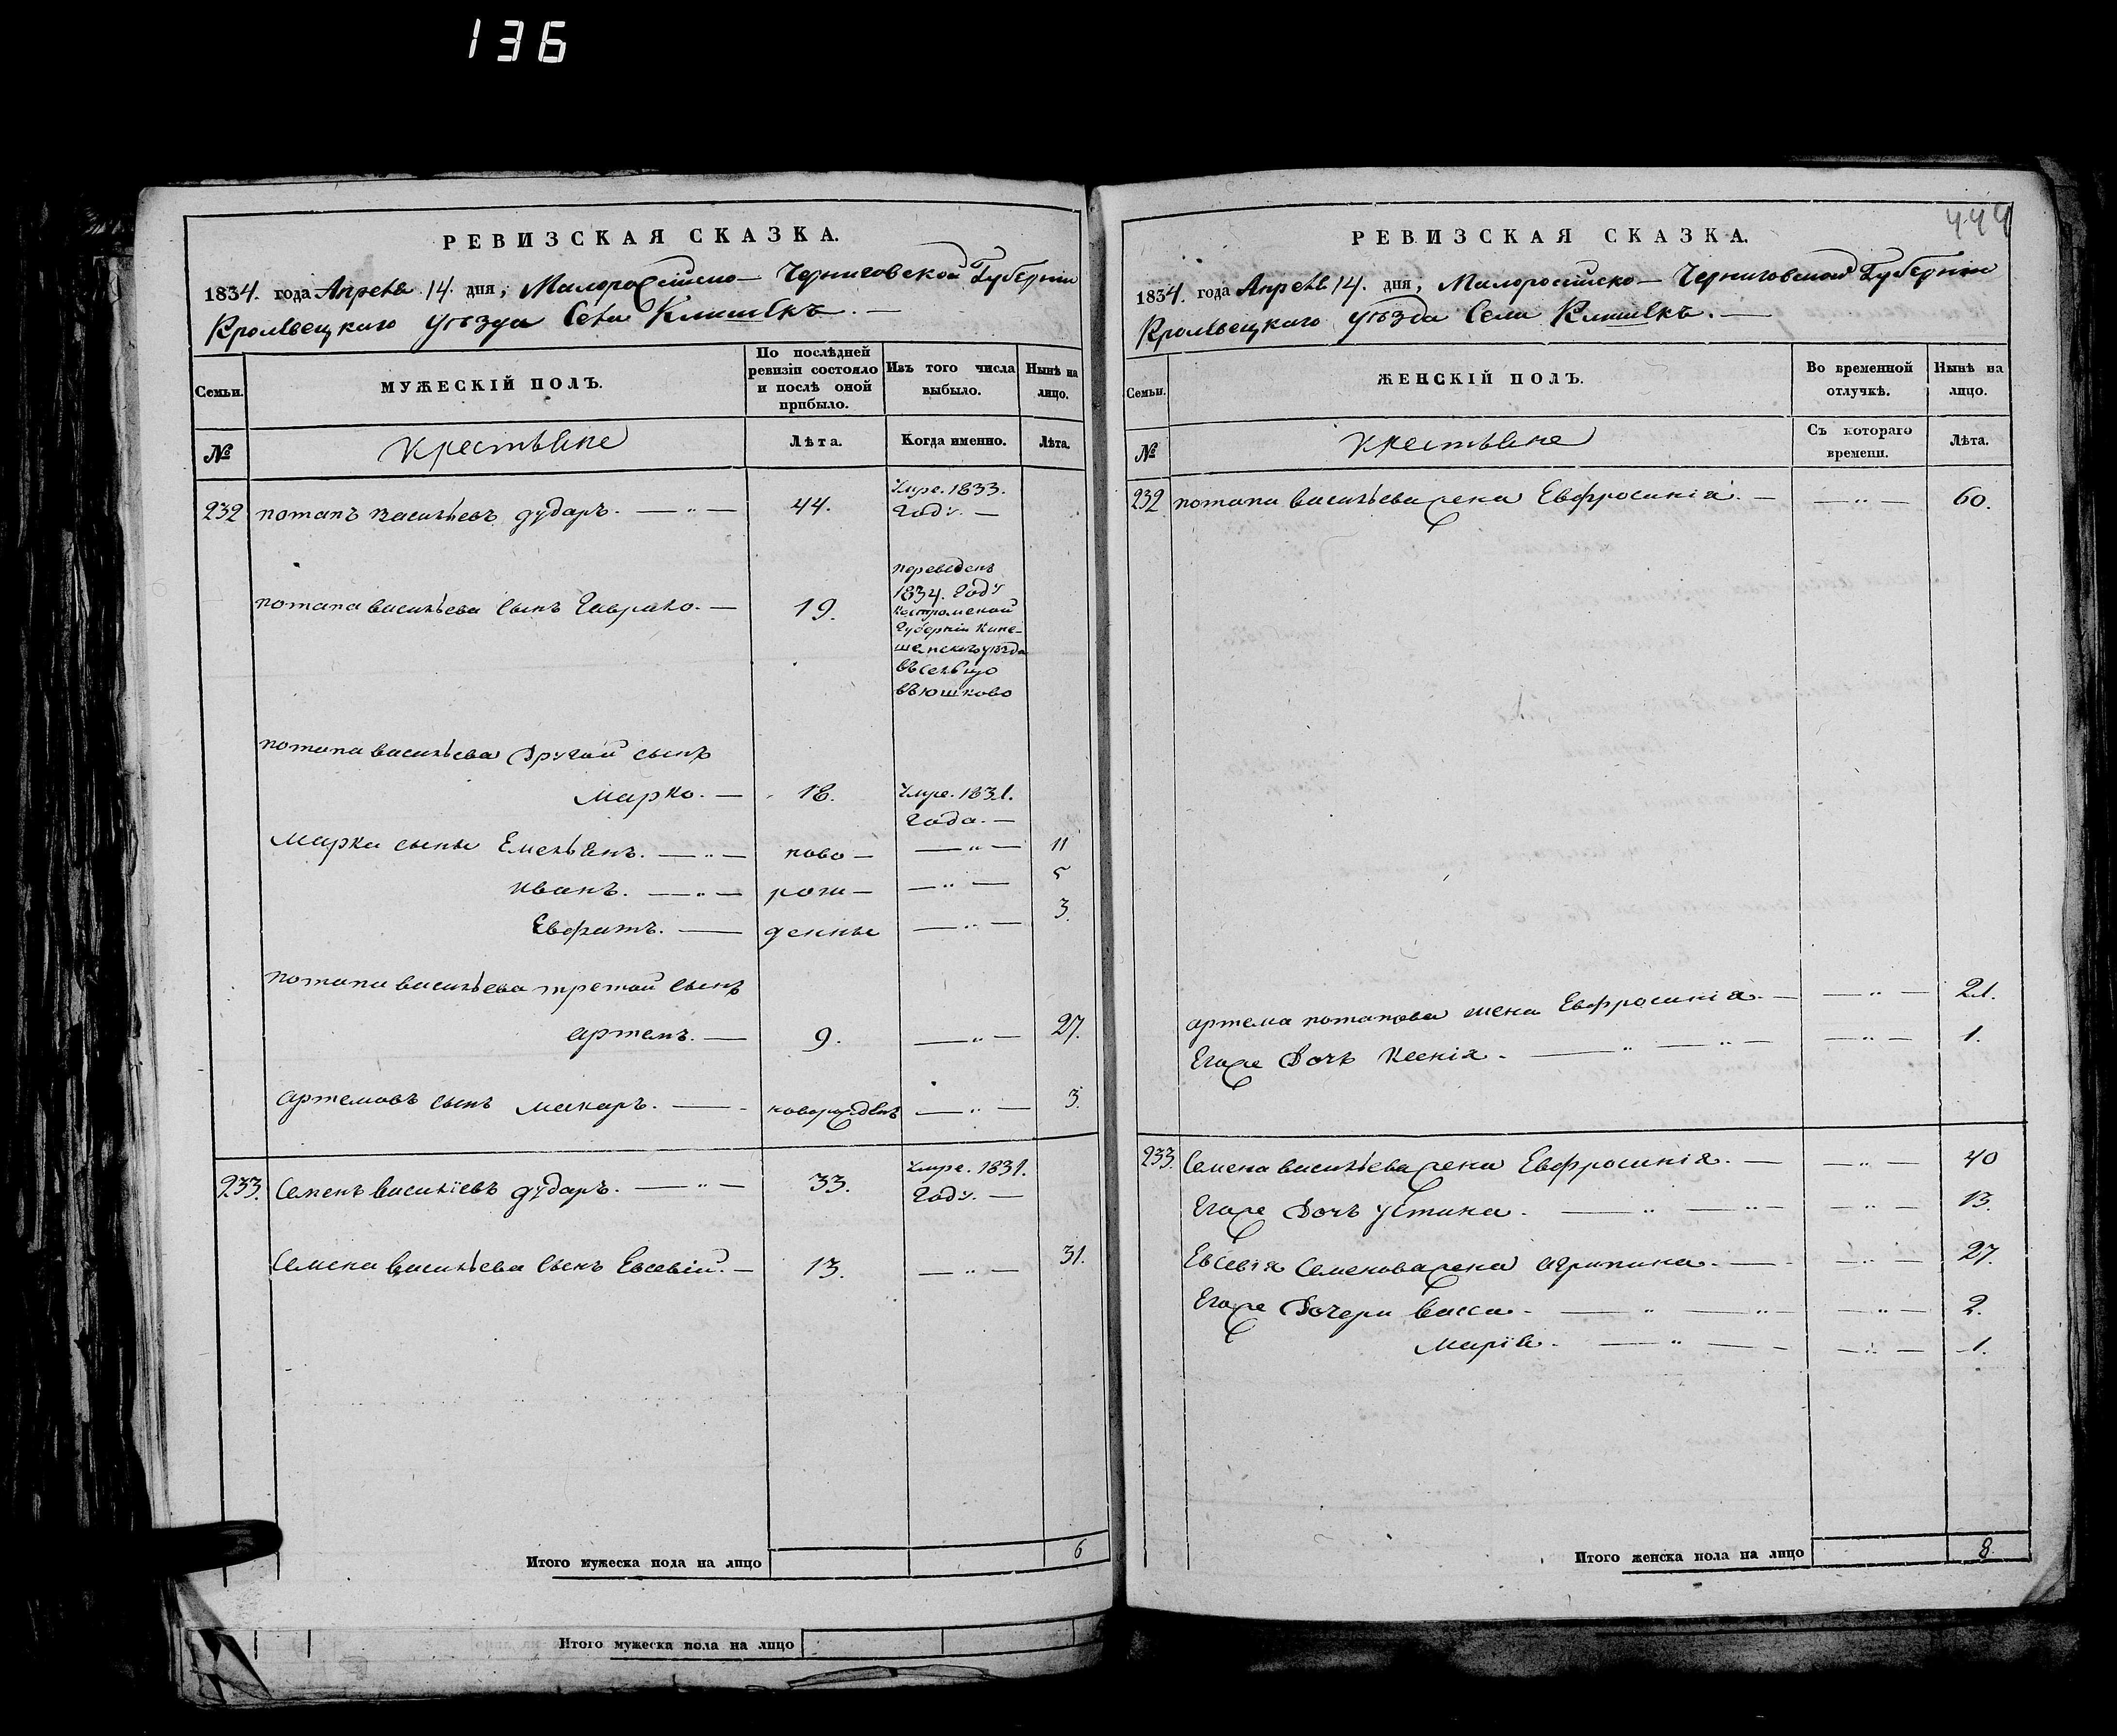 136
РЕВИЗСКАЯ СКАЗКА.
1834. года Апреля 14. дня, Малоросійско- Черниговской Губерніи
Кролевецкаго уѣзда Села Клишекъ. —
Семьи. МУЖЕСКІЙ ПОЛЪ. По послѣдней ревизіи состояло и послѣ оной прибыло. Изъ того числа выбыло. Нынѣ на лицо.
№ крестьяне Лѣта. Когда именно. Лѣта.
232 потапъ васильевъ дударъ. — „ — 44. Умре. 1833.
Году. —
переведенъ
1834. Году
костромской
потапа васильева сынъ Гаврило. — 19.
Губерніи Кине-
шемскъ уѣзда
въсельцо
вьюшково
потапа васильева другой сынъ
марко. — 18. Умре. 1831.
Года. —
марка сыны Емельянъ. — „ — ново — — „ — 11
иванъ. — „ — рож — — „ — 5
Евфатъ. — денные — „ — 3.
потапа васильева третой сынъ
артемъ. — 9. — „ — 27.
артемовъ сынъ макаръ. — новорожденъ — „ — 3.
233. Семенъ василіевъ дударъ. — „ — 33. Умре. 1831.
Году. —
Семена васильева сынъ Евсевій. — 13. — „ — 31.
Итого мужеска пола на лицо 6
Итого мужеска пола на лицо
444
РЕВИЗСКАЯ СКАЗКА.
1834. года Апреля 14. дня, Малоросійско- Черниговской Губерніи
Кролевецкаго уѣзда Села Клишекъ. —
Семьи. ЖЕНСКІЙ ПОЛЪ. Во временной отлучкѣ. Нынѣ на лицо.
№ крестьяне Съ котораго времени. Лѣта.
232 потапа васильева жена Евфросинія. — — „ — 60.
артема потапова жена Евфросинія. — — „ — 21.
Егоже дочь Ксенія. — „ — „ — — „ — 1.
233. Семена васильева жена Евфросинія. — — „ — 40
Егоже дочь устина. — „ — „ — — „ — 13.
Евсевія Семенова жена агрипина. — — „ — 27.
Егоже дочери васса. — „ — „ — — „ — 2.
марія. — „ — — „ — 1.
Итого женска пола на лицо 8.